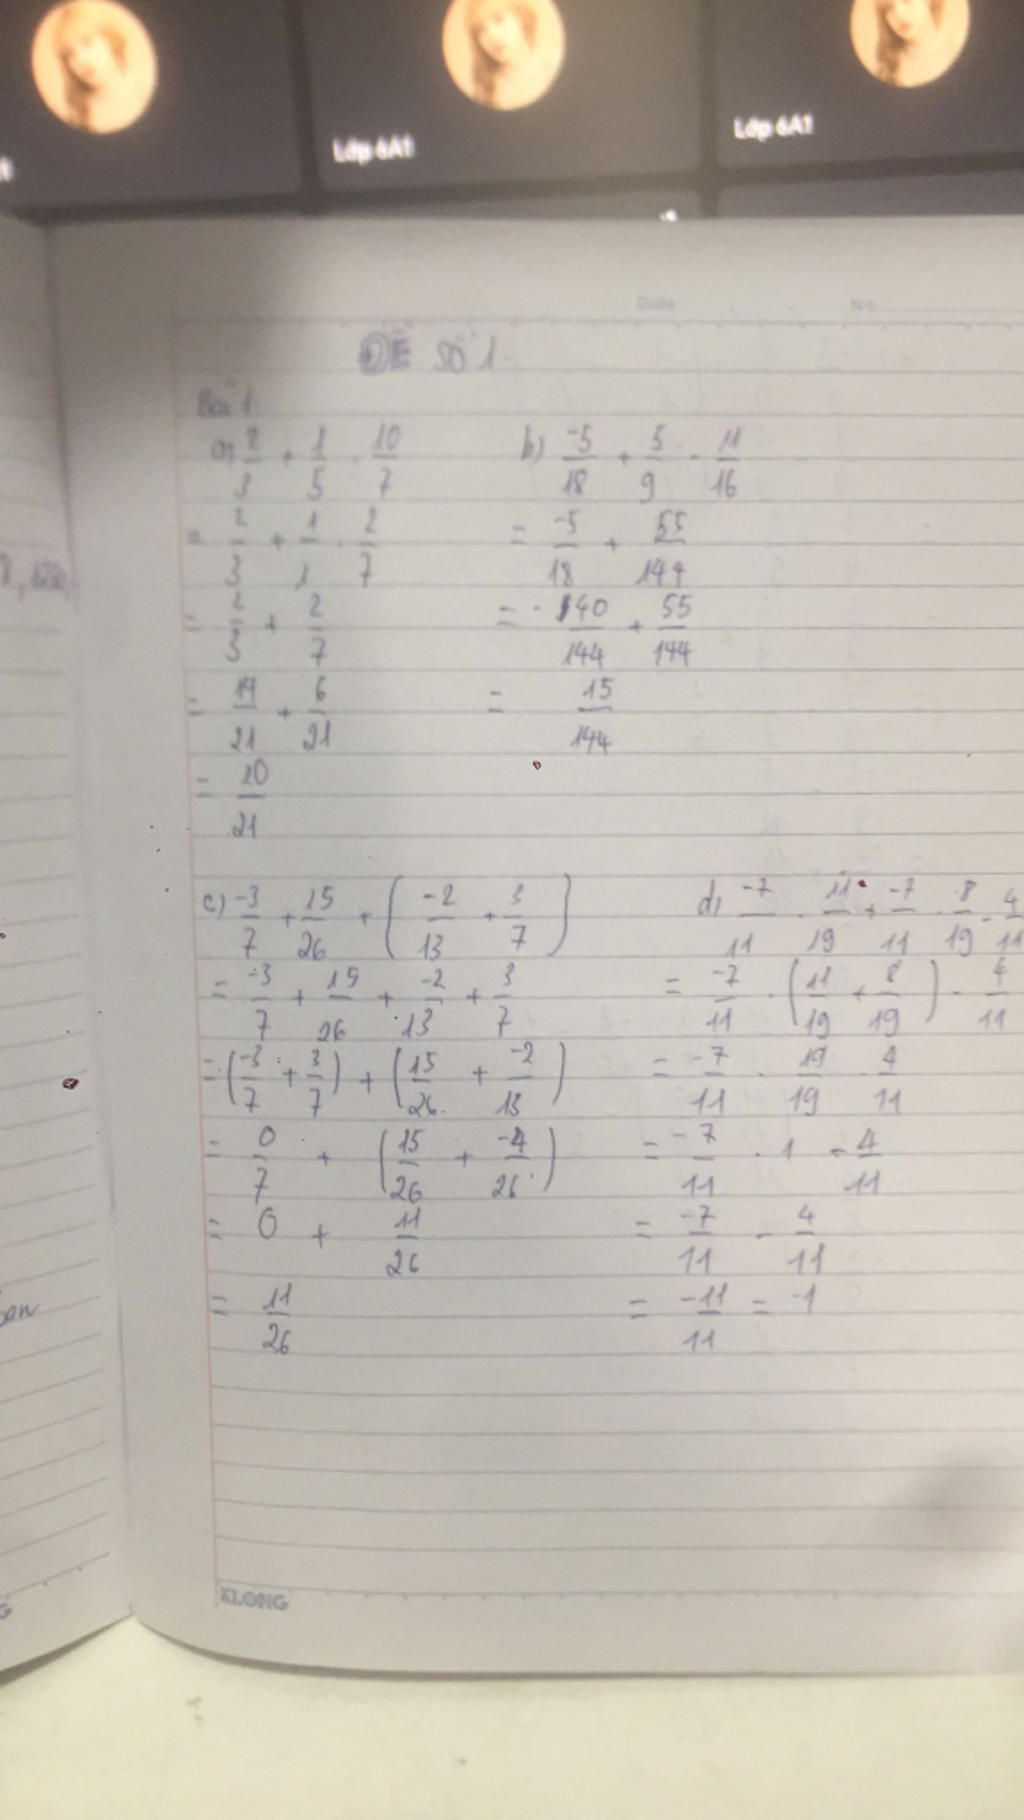 Lớp 6A1
Lớp 6A1
Date
No.
ĐỀ SỐ 1
Bài 1:
a) 2/3 + 1/5 . 10/7
= 2/3 + 1/1 . 2/7
= 2/3 + 2/7
= 14/21 + 6/21
= 20/21
b) -5/18 + 5/9 . 11/16
= -5/18 + 55/144
= -40/144 + 55/144
= 15/144
c) -3/7 + 15/26 + (-2/13 + 3/7)
= -3/7 + 15/26 + -2/13 + 3/7
= (-3/7 + 3/7) + (15/26 + -2/13)
= 0/7 + (15/26 + -4/26)
= 0 + 11/26
= 11/26
d) -7/11 . 11/19 + -7/11 . 8/19 - 4/11
= -7/11 . (11/19 + 8/19) - 4/11
= -7/11 . 19/19 - 4/11
= -7/11 . 1 - 4/11
= -7/11 - 4/11
= -11/11 = -1
KLONG